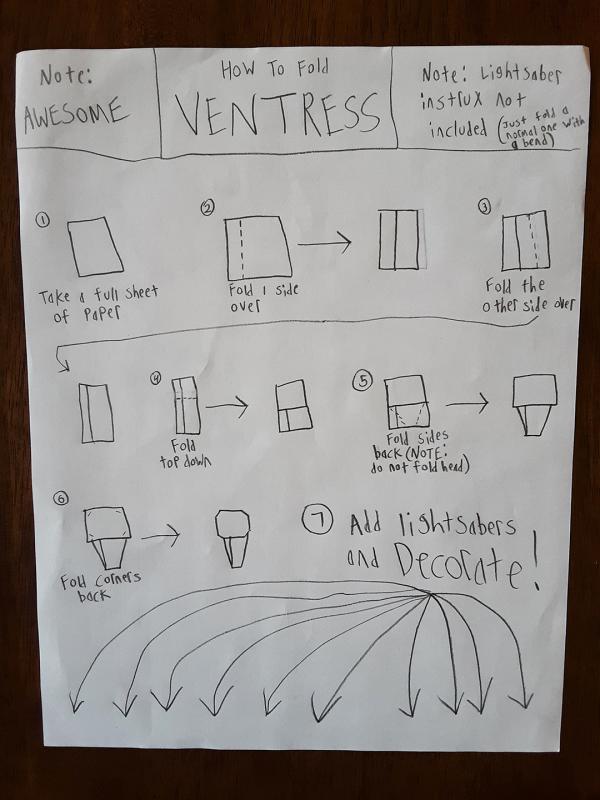 Note:
AWESOME
How To Fold
VENTRESS
Note: Lightsaber
instrux not
included (Just fold a
normal one with
a bend)
①
Take a full sheet
of Paper
②
Fold 1 side
over
③
Fold the
other side over
④
Fold
top down
⑤
Fold sides
back (NOTE:
do not fold head)
⑥
Fold corners
back
⑦ Add lightsabers
and Decorate!